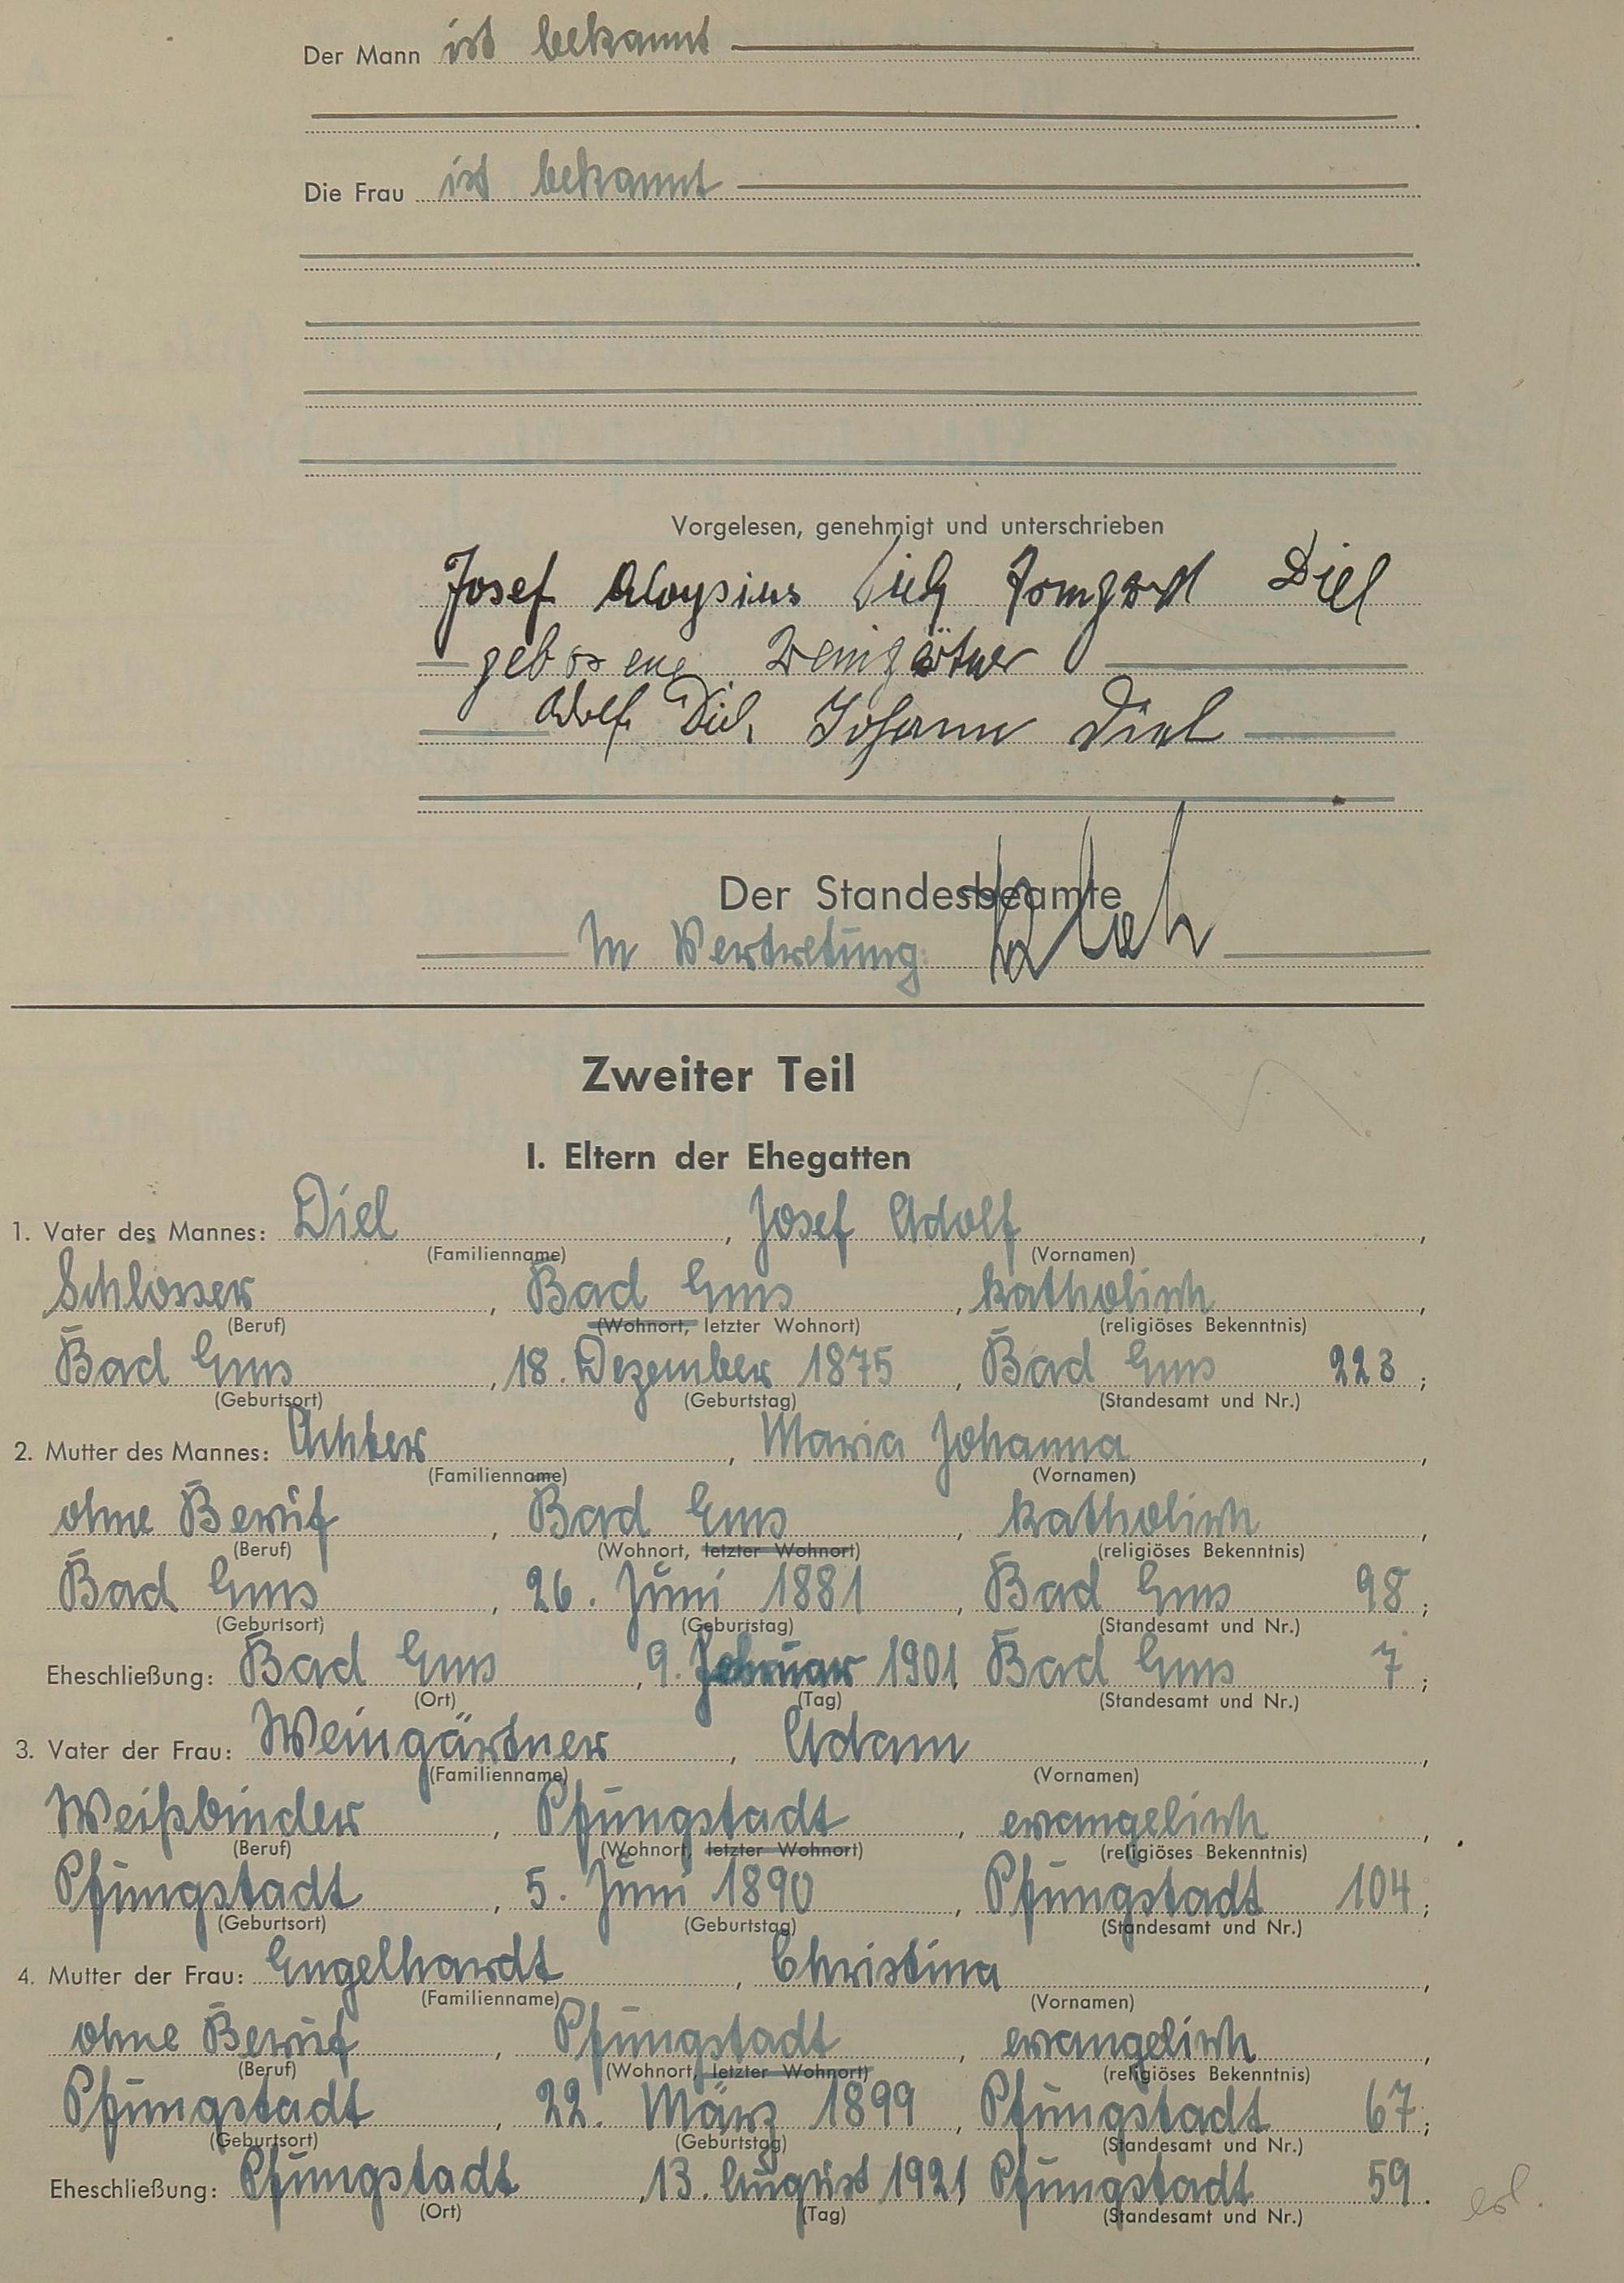 Der Mann ist bekannt
Die Frau ist bekannt
Vorgelesen, genehmigt und unterschrieben
Josef Aloysius Diel Irmgard Diel
geborene Weingärtner
Adolf Diel Johann Diel
Der Standesbeamte
In Vertretung:
Zweiter Teil
I. Eltern der Ehegatten
1. Vater des Mannes: Diel, Josef Adolf,
(Familienname) (Vornamen)
Schlosser, Bad Ems, katholisch,
(Beruf) (Wohnort, letzter Wohnort) (religiöses Bekenntnis)
Bad Ems, 18. Dezember 1875, Bad Ems 223;
(Geburtsort) (Geburtstag) (Standesamt und Nr.)
2. Mutter des Mannes: Achter, Maria Johanna,
(Familienname) (Vornamen)
ohne Beruf, Bad Ems, katholisch,
(Beruf) (Wohnort, letzter Wohnort) (religiöses Bekenntnis)
Bad Ems, 26. Juni 1881, Bad Ems 98;
(Geburtsort) (Geburtstag) (Standesamt und Nr.)
Eheschließung: Bad Ems, 9. Februar 1901, Bad Ems 7;
(Ort) (Tag) (Standesamt und Nr.)
3. Vater der Frau: Weingärtner, Adam,
(Familienname) (Vornamen)
Weißbinder, Pfungstadt, evangelisch,
(Beruf) (Wohnort, letzter Wohnort) (religiöses Bekenntnis)
Pfungstadt, 5. Juni 1890, Pfungstadt 104;
(Geburtsort) (Geburtstag) (Standesamt und Nr.)
4. Mutter der Frau: Engelhardt, Christina,
(Familienname) (Vornamen)
ohne Beruf, Pfungstadt, evangelisch,
(Beruf) (Wohnort, letzter Wohnort) (religiöses Bekenntnis)
Pfungstadt, 22. März 1899, Pfungstadt 67;
(Geburtsort) (Geburtstag) (Standesamt und Nr.)
Eheschließung: Pfungstadt, 13. August 1921, Pfungstadt 59.
(Ort) (Tag) (Standesamt und Nr.)
erl.